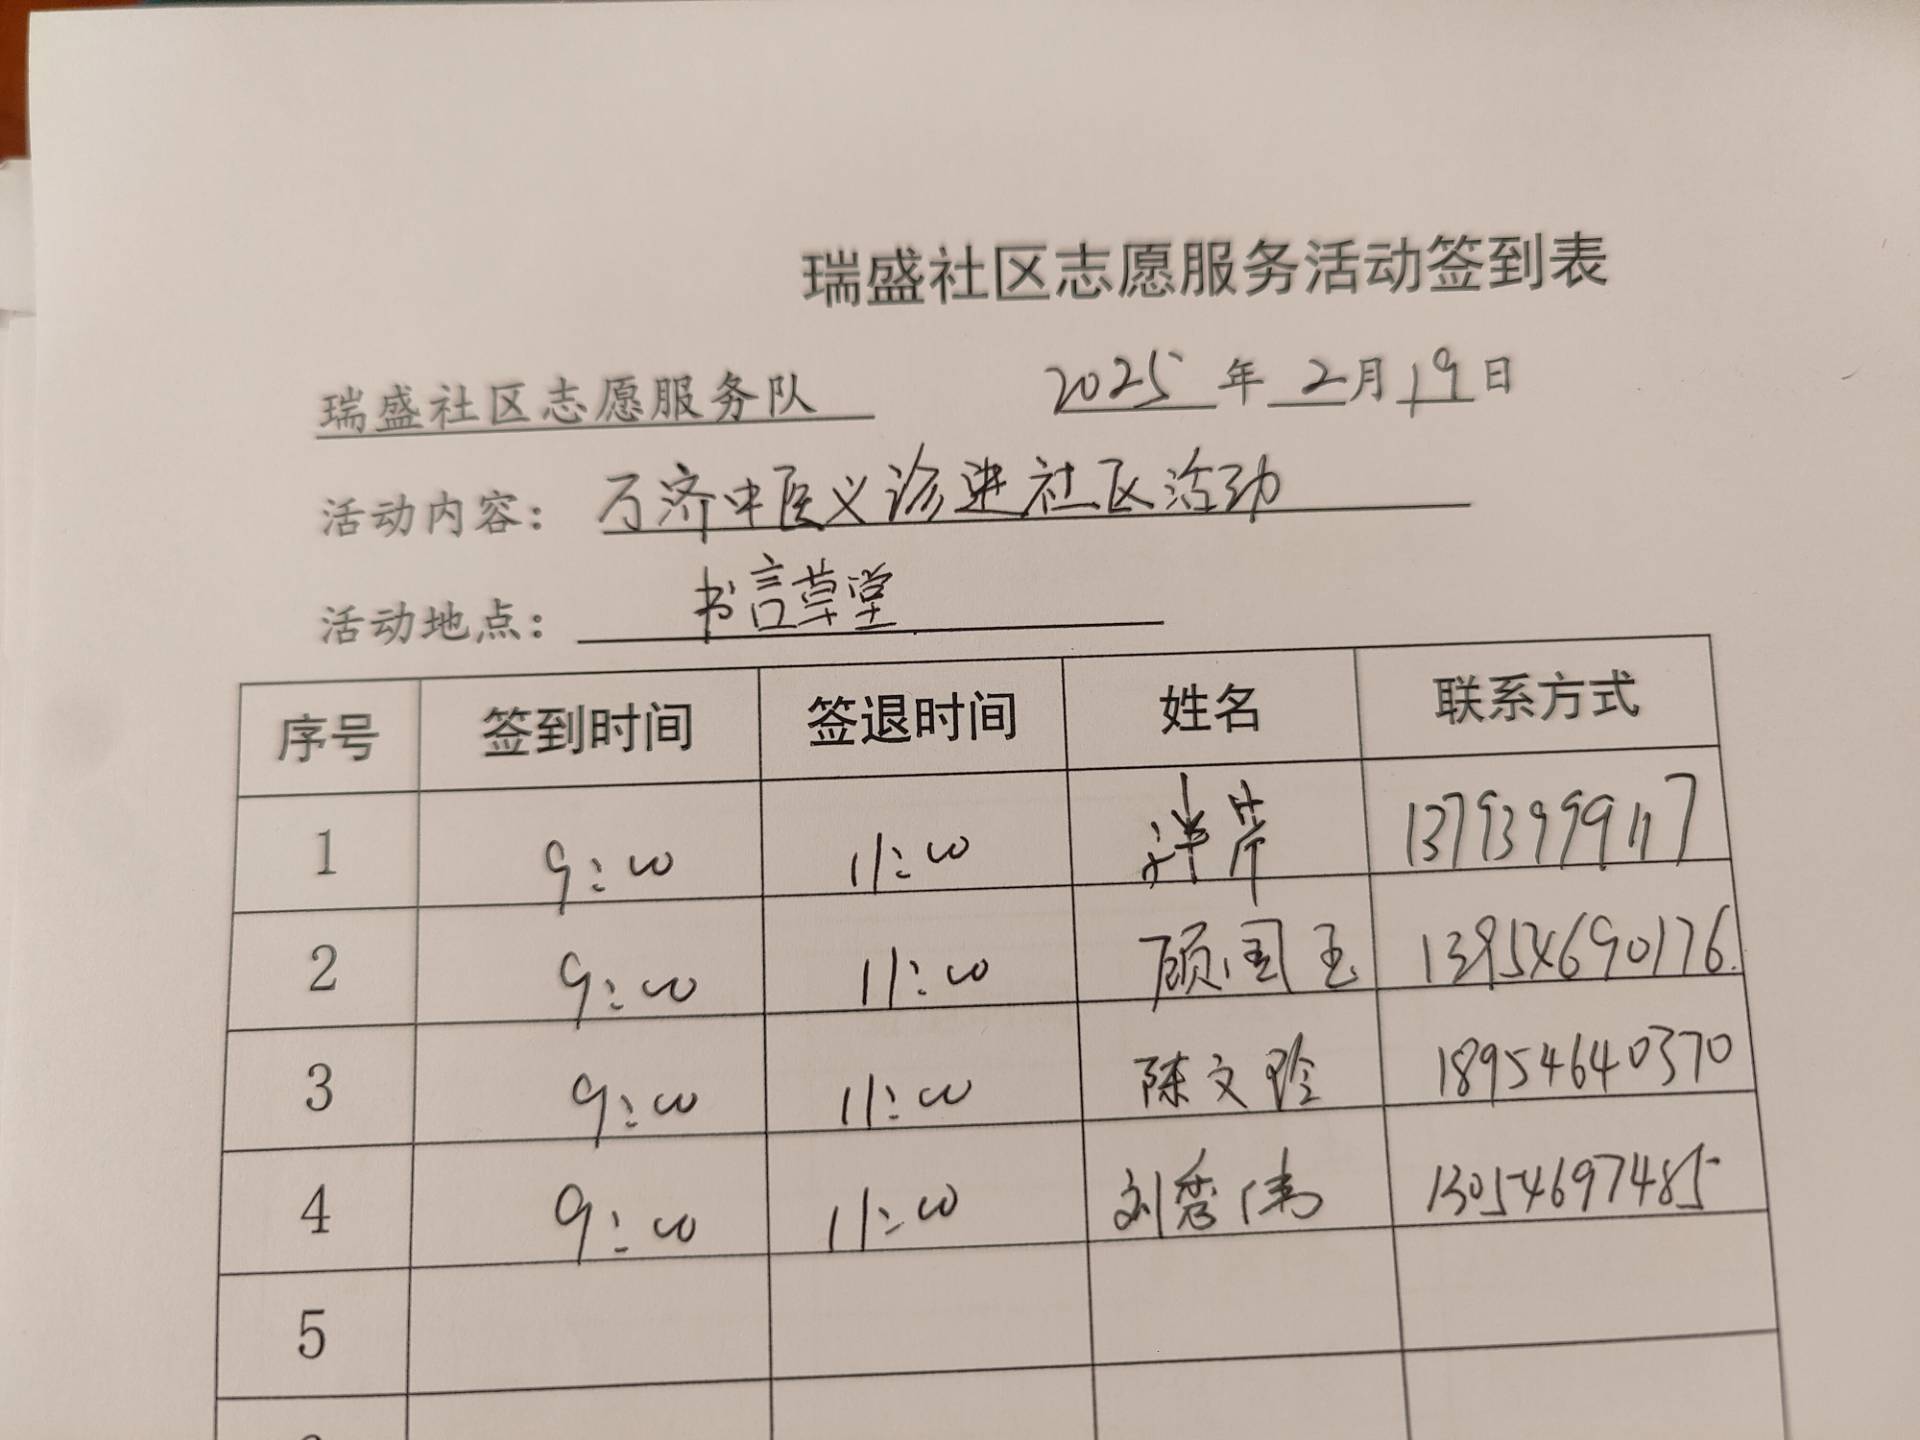 瑞盛社区志愿服务活动签到表
瑞盛社区志愿服务队 2025年2月19日
活动内容：万济中医义诊进社区活动
活动地点：书言草堂
序号 签到时间 签退时间 姓名 联系方式
1 9:00 11:00 13793999117
2 9:00 11:00 顾国玉 13954690176.
3 9:00 11:00 陈文玲 18954640370
4 9:00 11:00 刘秀伟 13054697485
5